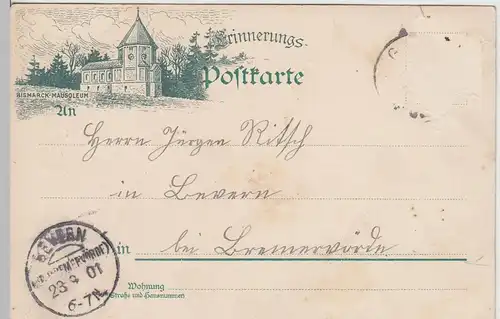 Erinnerungs-
Postkarte
BISMARCK-MAUSOLEUM
An
Herrn Jürgen Ritsch
in Bevern
in bei Bremervörde
BEVERN
(BZ. BREMERVÖRDE)
23 9 01
6-7N.
Wohnung
Straße und Hausnummer